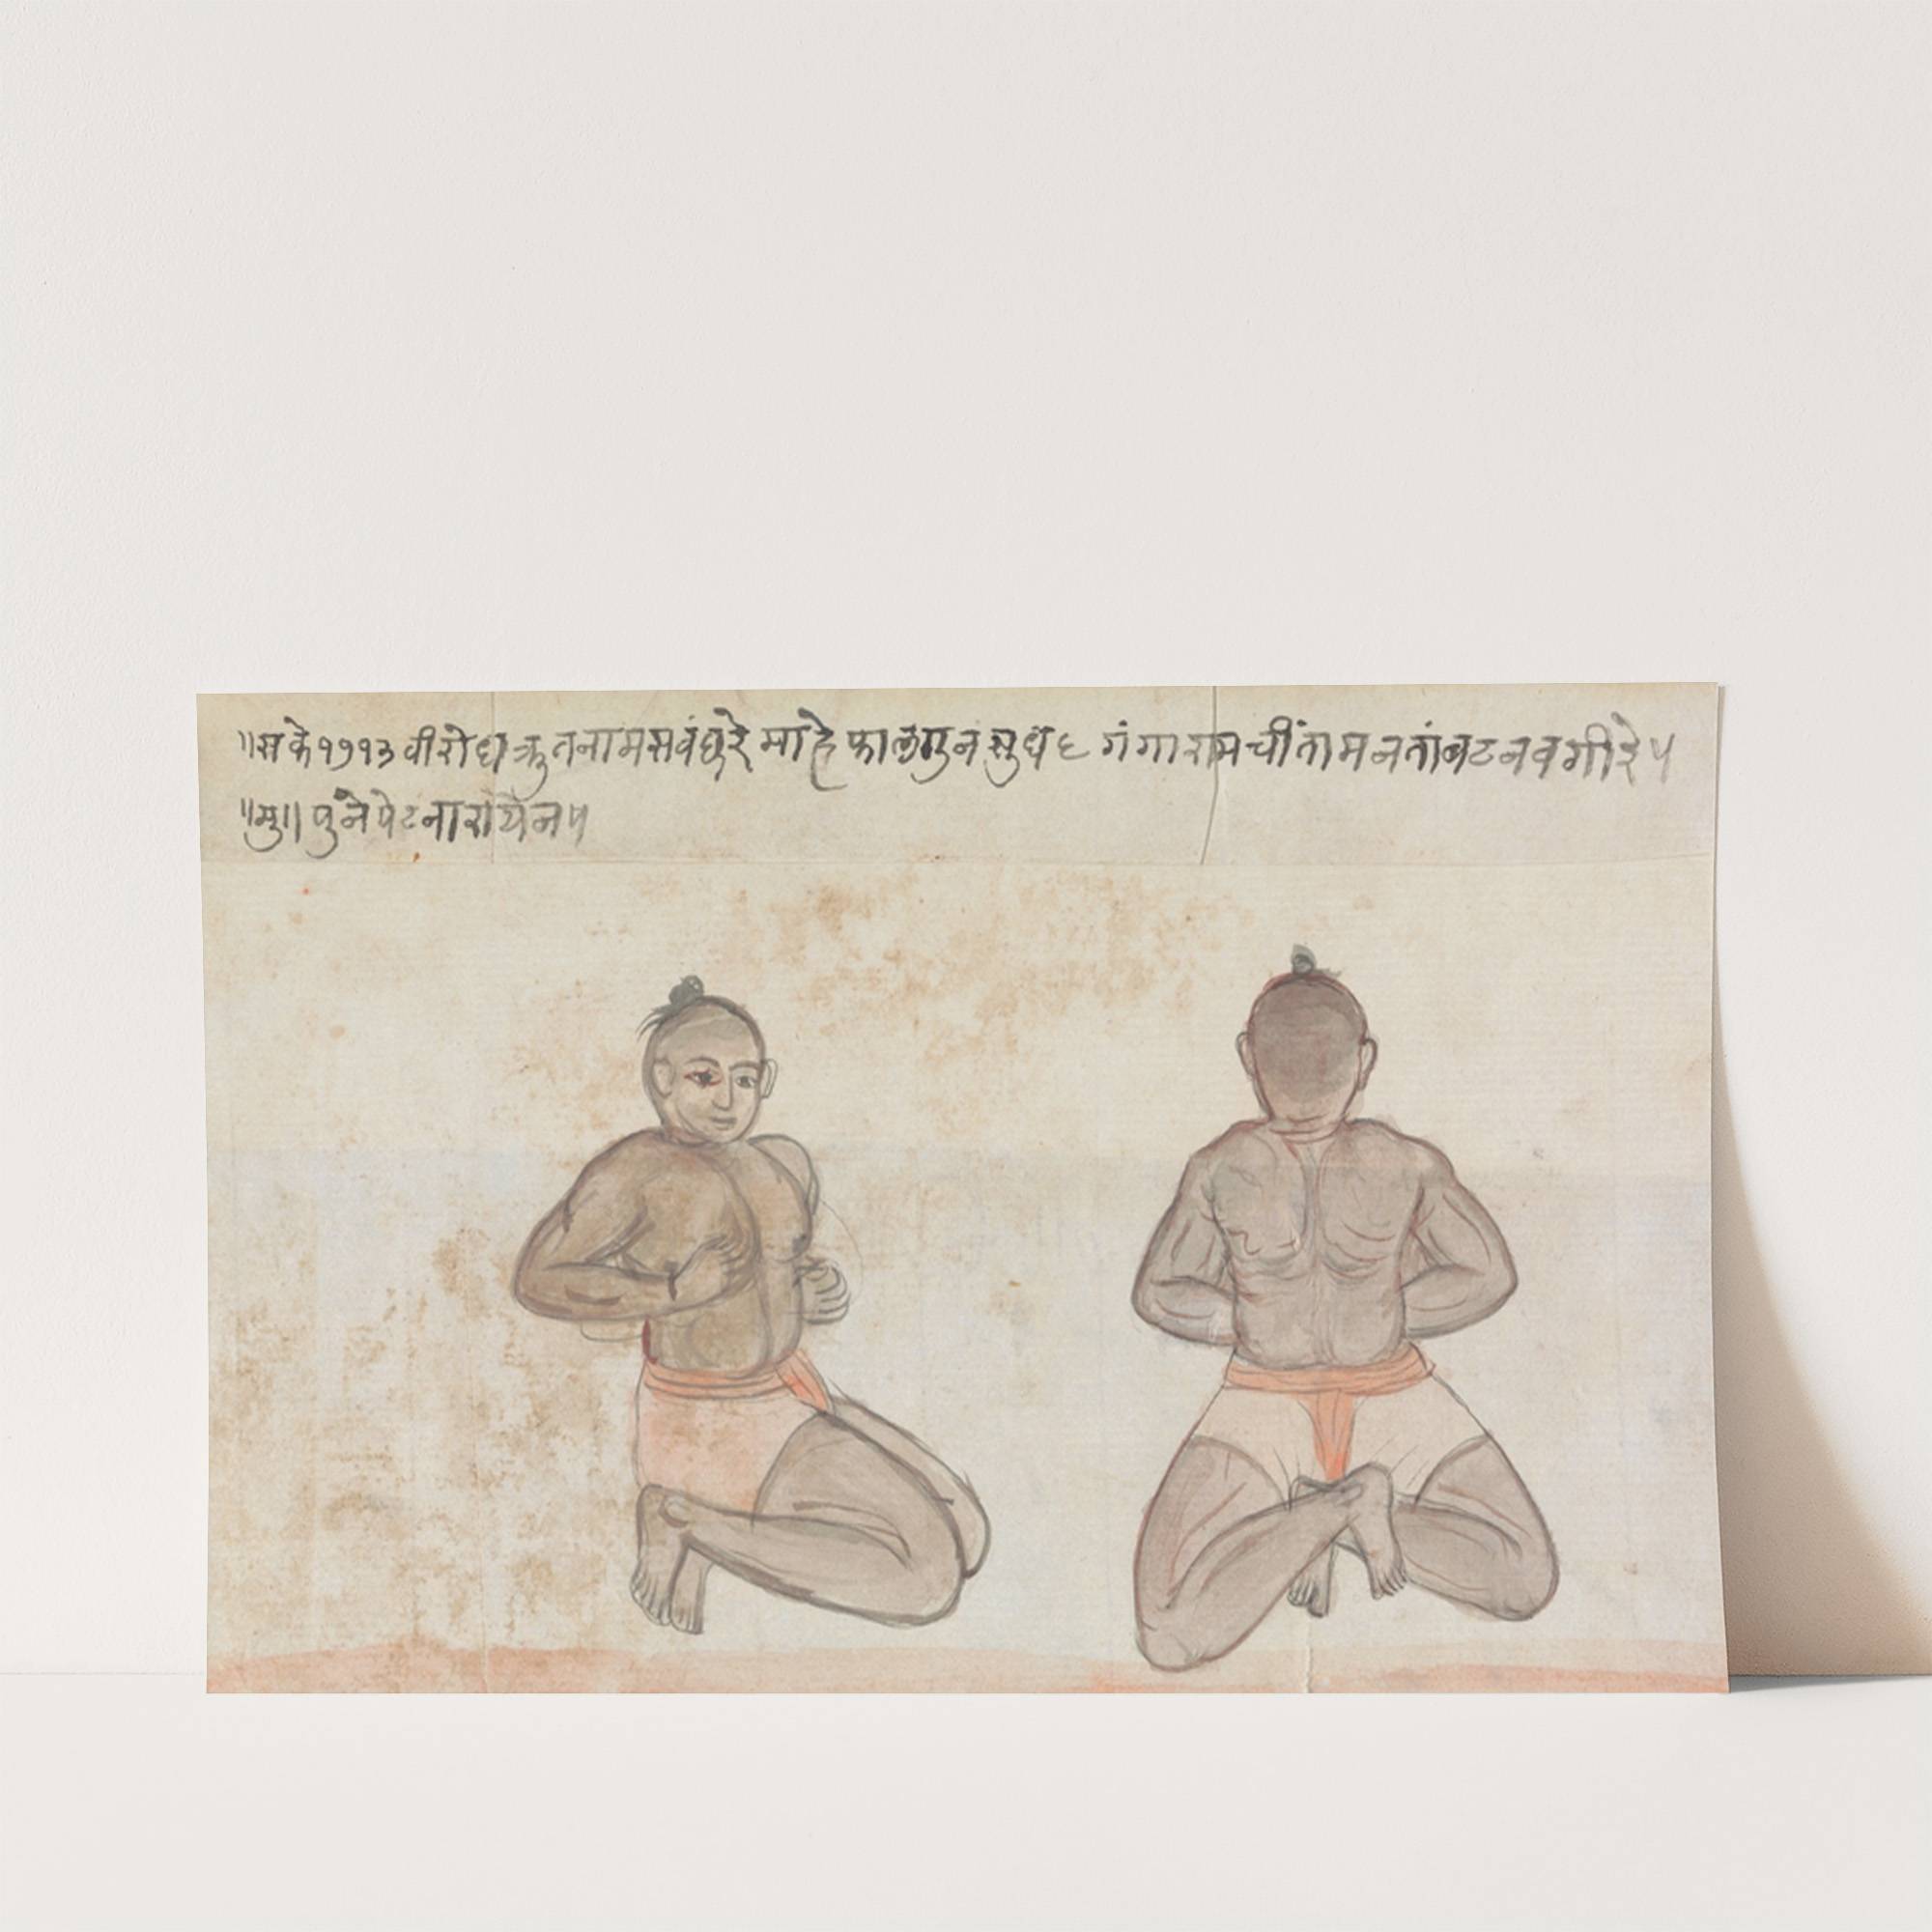 ॥सके १७१३ वीरोधक्रुतनाम सवंछरे माहे फालगुन सुध ६ गंगाराम चींतामन तांबट नवगीरे ५
॥मु॥ पुने पेट नारायेन ५